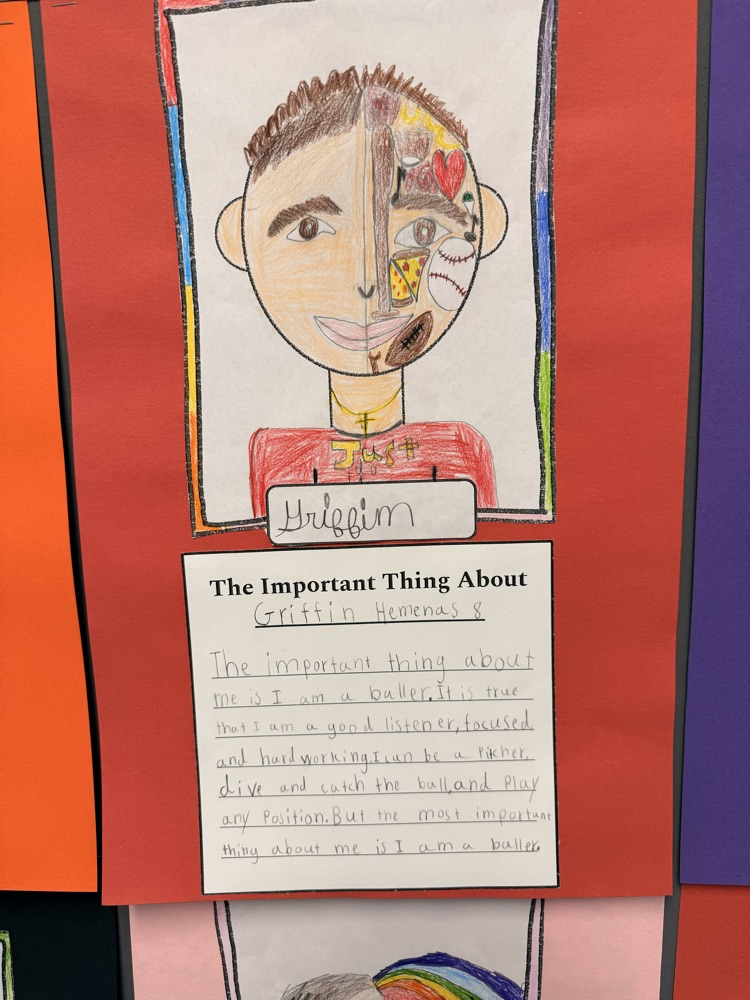 Just
Griffin
The Important Thing About
Griffin Hemenas 8
The important thing about
me is I am a baller. It is true
that I am a good listener, focused,
and hard working. I can be a Pikher,
dive and catch the ball, and Play
any Position. But the most important
thing about me is I am a baller.